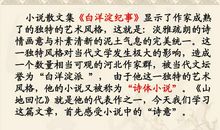 小说散文集《白洋淀纪事》显示了作家成熟
了的独特的艺术风格，这就是：淡雅疏朗的诗
情画意与朴素清新的泥土气息的完美统一。这
一独特风格对当代文学发生极大的影响，造成
一个数量相当可观的河北作家群，被当代文坛
誉为“白洋淀派 ”，由于他这一独特的艺术
风格，他的小说又被称为“诗体小说”。《山
地回忆》就是他的代表作之一，今天我们学习
这篇文章，首先感受小说中的“诗意”。